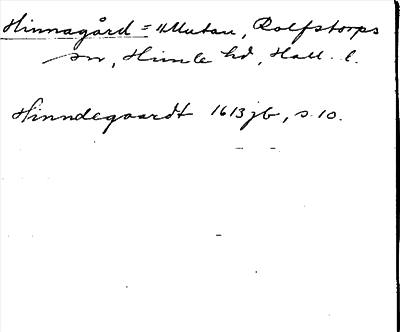 Hinnagård = "Mutan, Rolfstorps
sn, Himle hd, Hall. l.
Hinndegaardt 1613 jb, s. 10.